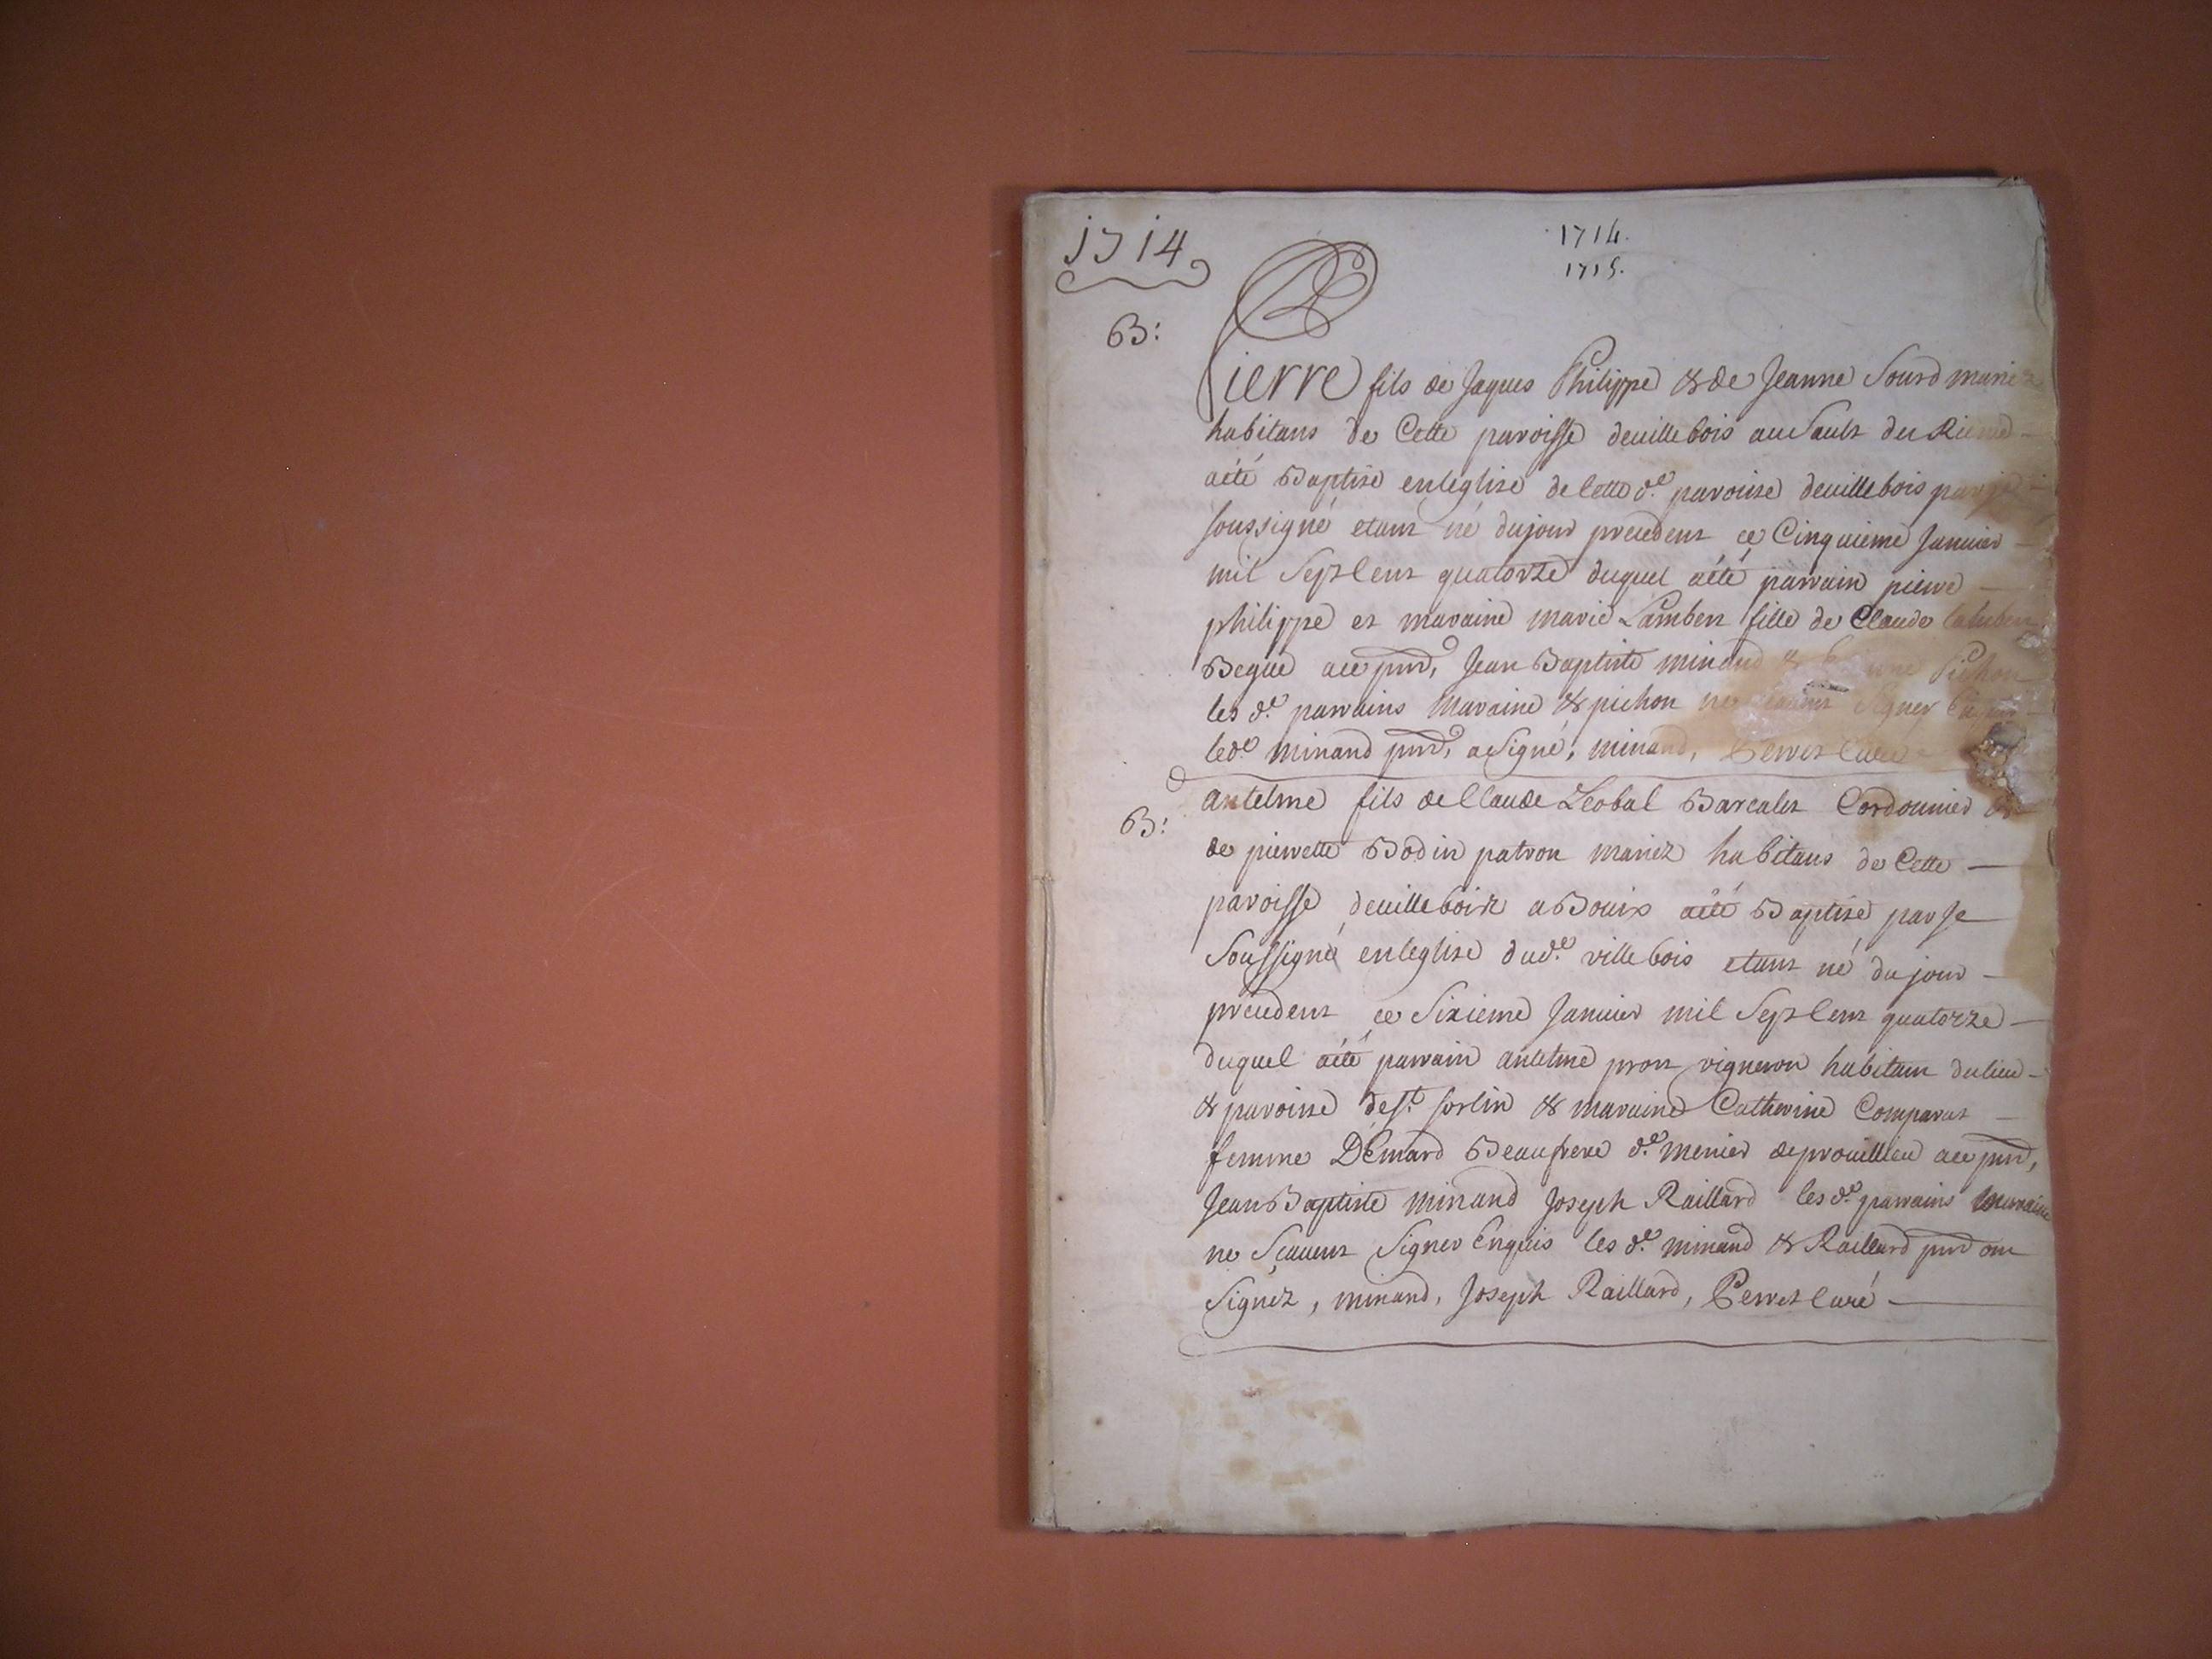 1714
1714.
1715.
B:
Pierre fils de Jaques Philippe & de Jeanne Sourd mariez
habitans de Cette paroisse deuillebois au Sault du
aété Baptisé enléglise de Cette de. paroisse deuillebois par je
soussigné etant né dujour precedent ce Cinquieme Januier
mil Sept Cent quatorze duquel aété parrain pierre
philippe et maraine marie Lambert fille de Claude lambert
Begue ace pnd, Jean Baptiste minand & Pichon
les de. parrains maraine & pichon ne signer
lede. minand pnd, asigné, minand, Perret Curé
B:
antelme fils de Claude Leobal Barcalet Cordonnier &
de pierrette Bodin patron mariez habitans de Cette
paroisse deuillebois a Bouix aété Baptisé par Je
Soussigné enleglise dude. villebois etant né dujour
precedent ce Sixieme Januier mil Sept Cent quatorze
duquel aété parrain antelme pron vigneron habitant dulieu
& paroisse de st. sorlin & maraine Catherine Comparat
femme DEmard Beaufrere de. menier deprouillieu ace pnd,
Jean Baptiste minand Joseph Raillard les de. parrains maraine
ne Sçauent Signer Enquis les de. minand & Raillard pnd ont
Signez, minand, Joseph Raillard, Perret Curé